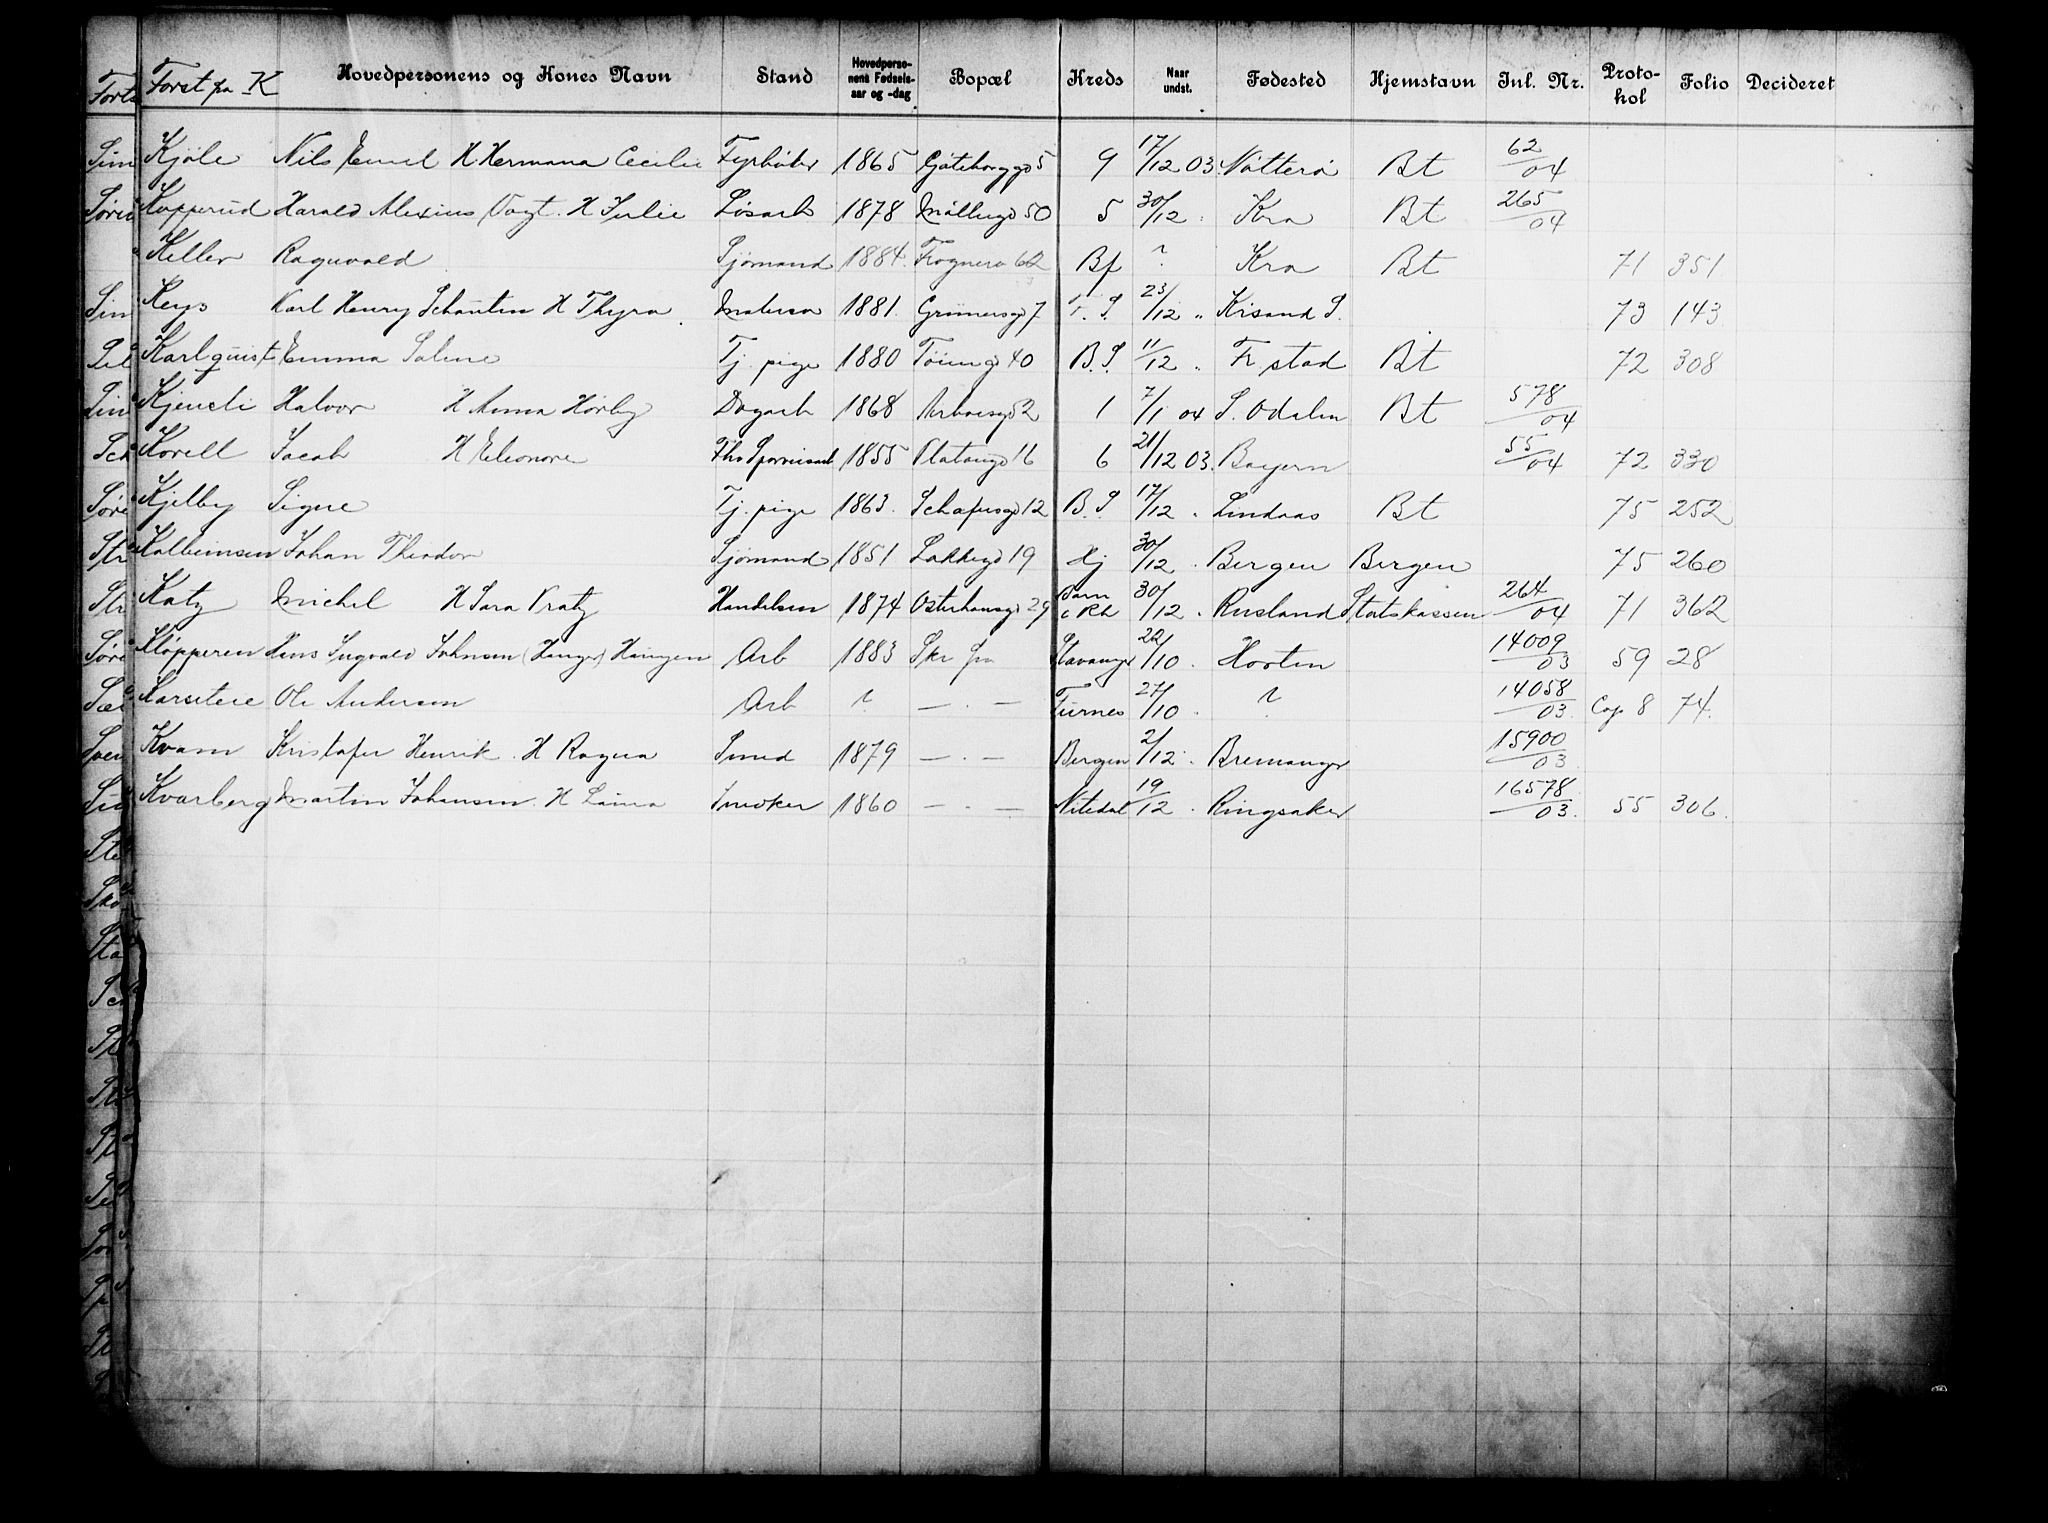 Forst fra K Hovedpersonens og Kones Navn Stand Hovedpersonens Fødselsaar og -dag Bopæl Kreds Naar undst. Fødested Hjemstavn Inl. Nr. Protokol Folio Decideret
Kjøle Nils Emil H Hermana Cecilie Fyrbøter 1865 Gøteborggd 5 9 17/12 03. Nøtterø Bt 62/04
Kopperud Harald Alexius Vogt. H Julie Løsarb 1878 Møllergd 50 5 30/12 Kra Bt 265/04
Keller Ragnvald Sjømand 1884. Frognerv 62 Bf ? Kra Bt 71 351
Keys Karl Henry H Thyra 1881. Grünersgd 7 F. S. 23/12 " Krsand S. 73 143
Karlquist Emma Tj. pige 1880 Tøiengd 40 B. S. 11/12 " Fr. stad Bt 72 308
Halvor H Anna Hørby Dagarb 1868 52 1 7/1 04 S. Odalen Bt 578/04
Korell Jacob H Eleonore 1855 Platougd 16 6 21/12 03. Bayern 55/04 72 330
Kjelby Signe Tj. pige 1863. Schafersgd 12 B. S. 17/12 Lindaas Bt 75 252
Johan Theodor Sjømand 1851 Lakkegd 19 Hj 30/12 Bergen Bergen 75 260
Katz Michel H Sara Kratz Handelsm 1874 Osterhausgd 29 30/12 Rusland Statskassen 264/04 71 362
Kløpperen Hans Ingvald Johnsen (Hanger) Haugen Arb 1883 Skr fra Stavanger 22/10 Horten 14009/03 59 28
Ole Andersen Arb ? — . — Furnes 27/10 ? 14058/03. Cop 8 74.
Kvam Kristofer Henrik. H Ragna Smed 1879 — . — Bergen 2/12 Bremanger 15900/03
Kvarberg Martin Johansen. H Laura Snedker 1860 — . — Nitedal 19/12 Ringsaker 16578/03. 55 306.